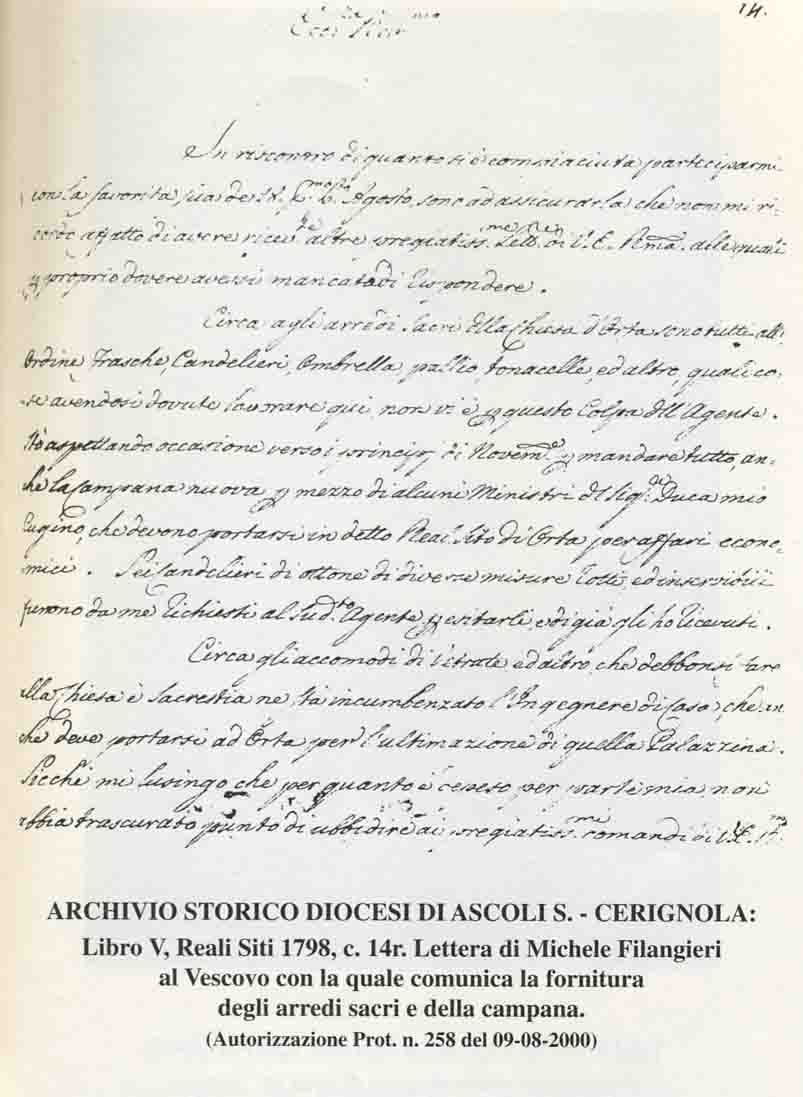 14.
In riscontro di quanto si è compiaciuta parteciparmi
con la favorita sua de Agosto, sono ad assicurarla che non mi ri-
cordo affatto di avere ricev.te altre pregiatiss.me Lett. di V. E. R.ma, alle quali
proprio dovere avessi mancato di rispondere.
Circa agli arredi sacri della Chiesa d'Orta sono tutti all'
Ordine Frasche, Candelieri, Ombrella, pallio, tonacelle, ed altro, quali co-
se avendosi dovute lavorare qui, non vi è questo Colpa dell'Agente.
Stò aspettando occasione verso i principj di Novem.e mandare tutto, an-
che la Campana nuova mezzo di alcuni Ministri del Sig.r Duca mio
Cugino, che devono portarsi in detto Real Sito di Orta per affari econo-
mici. Sei Candelieri di ottone di diverse misure rotti, ed inservibili
furono da me richiesti al sud.to Agente esitarli, e di già gli ho ricevuti.
Circa gli accomodi di vitrate, ed altro, che debbonsi fare
alla Chiesa e Sacrestia ne stà incumbenzato l'Ingegnere di Caso, che an-
che deve portarsi ad Orta per l'ultimazione di quella Palazzina.
Sicchè mi lusingo che per quanto è per parte mia non
abbia trascurato punto di ubbidire ai pregiatiss.mi comandi di V.E.
ARCHIVIO STORICO DIOCESI DI ASCOLI S. - CERIGNOLA:
Libro V, Reali Siti 1798, c. 14r. Lettera di Michele Filangieri
al Vescovo con la quale comunica la fornitura
degli arredi sacri e della campana.
(Autorizzazione Prot. n. 258 del 09-08-2000)